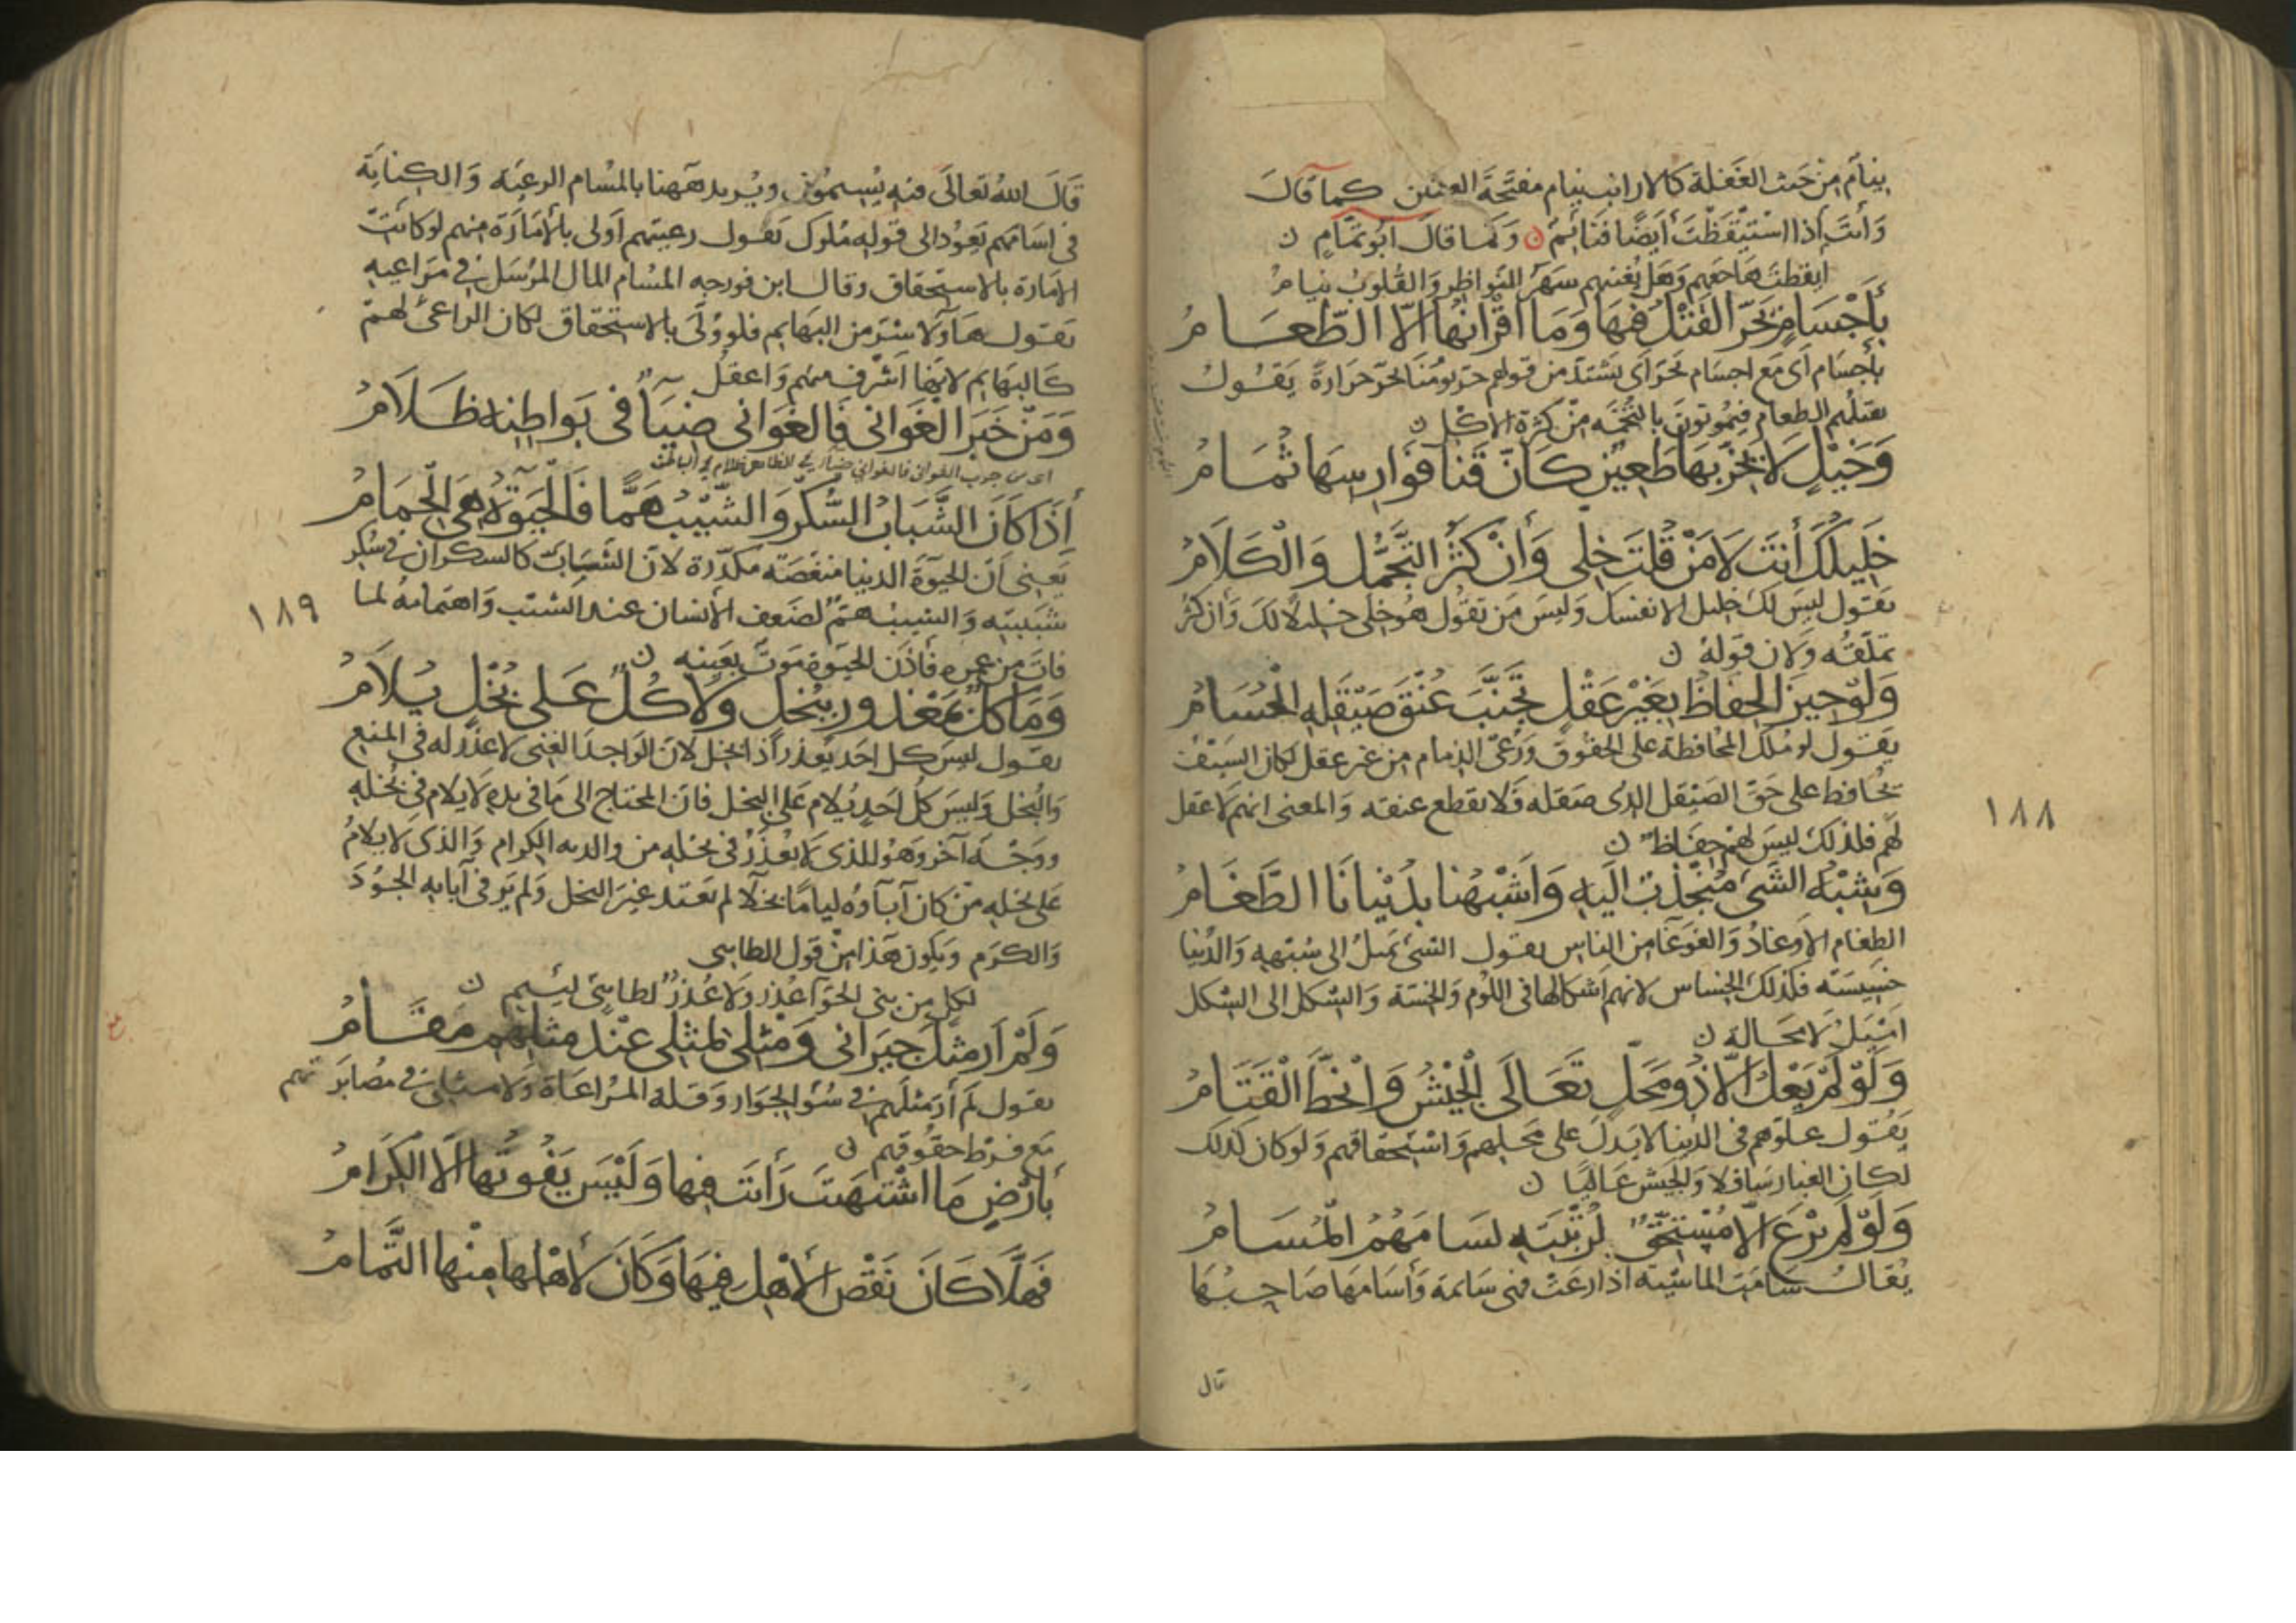 ينام من حيث الغفلة كالارانب نيام مفتحة العينين كما قال
وَأنتَ إذا اسْتَيْقَظْتَ أيضًا فَنَائِمُ وَكما قال ابو تمّام ن
ايقظت هاجعهم وَهَل يُغنيهم سَهَرُ النّواظِر وَالقُلوبُ نيامُ
بِأجْسَامٍ يَحَرّ القَتْلُ فيهَا وَمَا أقْرَانُهَا الّا الطّعَامُ
بأجسَام أي مَعَ اجسَام يحَرّ أي يشتدّ من قولهم حرّ يومُنا يحرّ حرَارةً يَقُولُ
يقتلهم الطعام فيموتونَ بالتُّخَمَه مِنْ كَثرة الاكل ن
وَخَيْلٍ لَا يَخِرّ بهَا طَعِيْنٌ كَأنّ قَنَا فَوَارِسِهَا ثُمَامُ
خَلِيلُكَ أنتَ لَا مَنْ قُلتَ خِلّي وَانْ كَثُرَ التَّجَمُّل وَالْكَلَامُ
يقول ليسَ لك خليل الا نفسك وَليسَ مَن تقول هُوَ خلّي خليلا لكَ وَان كثُر
تملّقه وَلان قوله ن
وَلَوْ حِيزَ الحِفَاظُ بِغَيْرِ عَقْلٍ تَجَنَّبَ عُنْقَ صَيْقَلِهِ الحُسَامُ
يَقول لو مُلك المُحافظة على الحقوق وَرَعي الذمام من غير عقل لكان السيف
يُحافظ على حَقّ الصَيْقل الذي صَقله فَلا يقطع عنقه وَالمعنى انهم لا عقل
لهم فلذلك ليسَ لهُمْ حِفَاظ ن
وَشِبْهُ الشَّيْءِ مُنْجَذِبٌ الَيْهِ وَاَشْبَهُنا بِدُنْيانَا الطَّغَامُ
الطغام الاوغادُ وَالغَوغَا من الناس يقول الشيء يَميلُ الى شبهه وَالدُنيا
خسيسَته فلذلك الخساس لانهم اَشكالها في اللوم وَالخسّة وَالشكل الى الشكل
اَمْيَلُ لا محَاله ن
وَلَوْ لَمْ يَعْلُ الّا ذُو مَحَلٍّ تَعَالَى الْجَيْشُ وَانْحَطَّ الْقَتَامُ
يَقُول علوّهم في الدنيا لا يَدلّ على محَلهم وَاسْتحقاقهم وَلو كان كذلك
لكان الغبار سَافلا وَالجَيش عَاليًا ن
وَلَوْ لَمْ يَرْعَ الّا مُسْتَحِقٌّ لِرُتْبَتِهِ لَسَامَهُمُ المُسَامُ
يُقالُ سَامَت الماشيَة اذا رعَت فهي سَائمة وَأسَامهَا صَاحِبُهَا
قال
١٨٨
قَالَ اللهُ تعالَى فيه تُسِيمُون ويُريد هَهنا بالمُسَام الرعيّة وَالكِنايَة
في اسَامهم تعُود الى قوله ملوك يَقول رعيتهم اَولى بالأمَارَة منهم لو كانَت
الامَارة بالاستحقاق وقال ابن فورجه المُسَام المال المرُسَل في مَرَاعيه
يقول هَاؤلَاء شرّ من البهَايم فلو وُلّي بالاستحقاق لكان الراعي لهمُ
كالبهَايم لانهَا اَشرف منهم وَاعقل
وَمَنْ خَبَرَ الْغَوَانِي فَالغَوَانِي ضِيَآءٌ في بَوَاطِنِهِ ظَلَامُ
اي من جرب الغواني فالغواني ضيآء في الظاهر ظلام في الباطن
إذَا كَانَ الشَّبَابُ السُّكْرَ وَالشَّيْبُ هَمًّا فَالحَيَوةُ هِيَ الْحِمَامُ
يَعني اَنّ الحَيَوة الدنيا منغّصَة مكدّرة لانّ الشَبَابَ كالسكران في سُكر
شَبيبَته وَالشيبُ همّ لضَعف الأنسان عند الشيب وَاهتمامه لما
فاتَ من عمره فَأذَن الحيَوة مَوتٌ بعَينه ن
وَمَا كُلٌّ بمَعْذُورٍ بِبُخْلٍ وَلَا كُلٌّ عَلَى بُخْلٍ يُلَامُ
يقول ليسَ كل احَد يُعذر اذا بخل لانّ الوَاجد الغني لا عذر له في المنع
وَالبُخل وَليسَ كلُ اَحَدٍ يُلام عَلى البُخل فانّ المحتاج الى مَا في يده لا يلام في بُخله
ووَجْه آخر وَهُو للذي لا يُعْذَرُ في بخله من والده الكرام وَالذي لا يلامُ
على بخله مَنْ كان آبآؤه ليامًا بخلآ لم يَعتد غيرَ البخل وَلم يَرَ في آبايه الجُودَ
وَالكرَم وَيكون هَذا مِنْ قَول الطايي
لكل من بني الحوّا عُذر وَلا عُذرٌ لطايِيّ لئيم ن
وَلَمْ أَرَ مِثْلَ جِيرَانِي وَمِثْلِي لِمِثْلِي عِنْدَ مِثْلِهِمِ مقَامُ
يقول لَم أرَ مثلَهم في سُوء الجوار وَقله المُرَاعَاة وَلا مثلي في مُصابَرتهم
مَع فرط حقوقهم ن
بأَرْضٍ مَا اشْتَهَيتَ رَأيتَ فِيهَا وَلَيْسَ يَفُوتُهَا الَّا الكِرَامُ
فَهَلَّا كَانَ نَقْصُ الأَهْلِ فِيهَا وَكَانَ لأهْلِهَا مِنْهَا التَّمَامُ
١٨٩